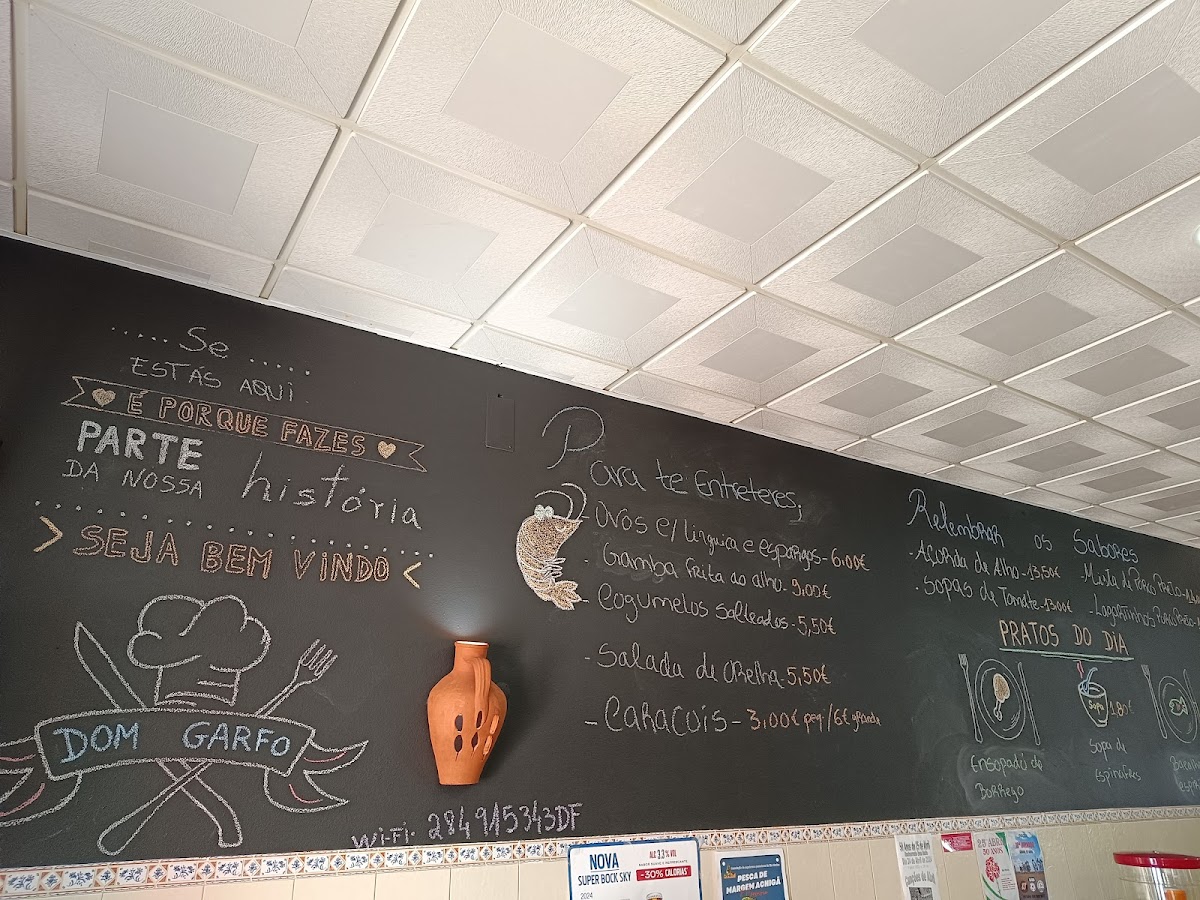 ..... Se .....
ESTÁS AQUI
É PORQUE FAZES
PARTE
DA NOSSA história
> SEJA BEM VINDO <
DOM GARFO
Wi-Fi- 284915343DF
Para te Entreteres,
- Ovos c/ linguiça e espargos - 6,00€
- Gamba frita ao alho - 9,00€
- Cogumelos Salteados - 5,50€
- Salada de Orelha - 5,50€
- Caracois - 3,00€ peq./6€ grande
Relembrar os Sabores
- Açorda de Alho - 13,50€
- Sopas de Tomate - 13,00€
Mista de Porco Preto -
- Lagartinhos Porco Preto -
PRATOS DO DIA
Ensopado de
Borrego
Sopa
1,80€
Sopa de
Espinafres
NOVA
SUPER BOCK SKY
2024
ALC 3.3% VOL
-30% CALORIAS*
PESCA DE
MARGEM ACHIGÃ